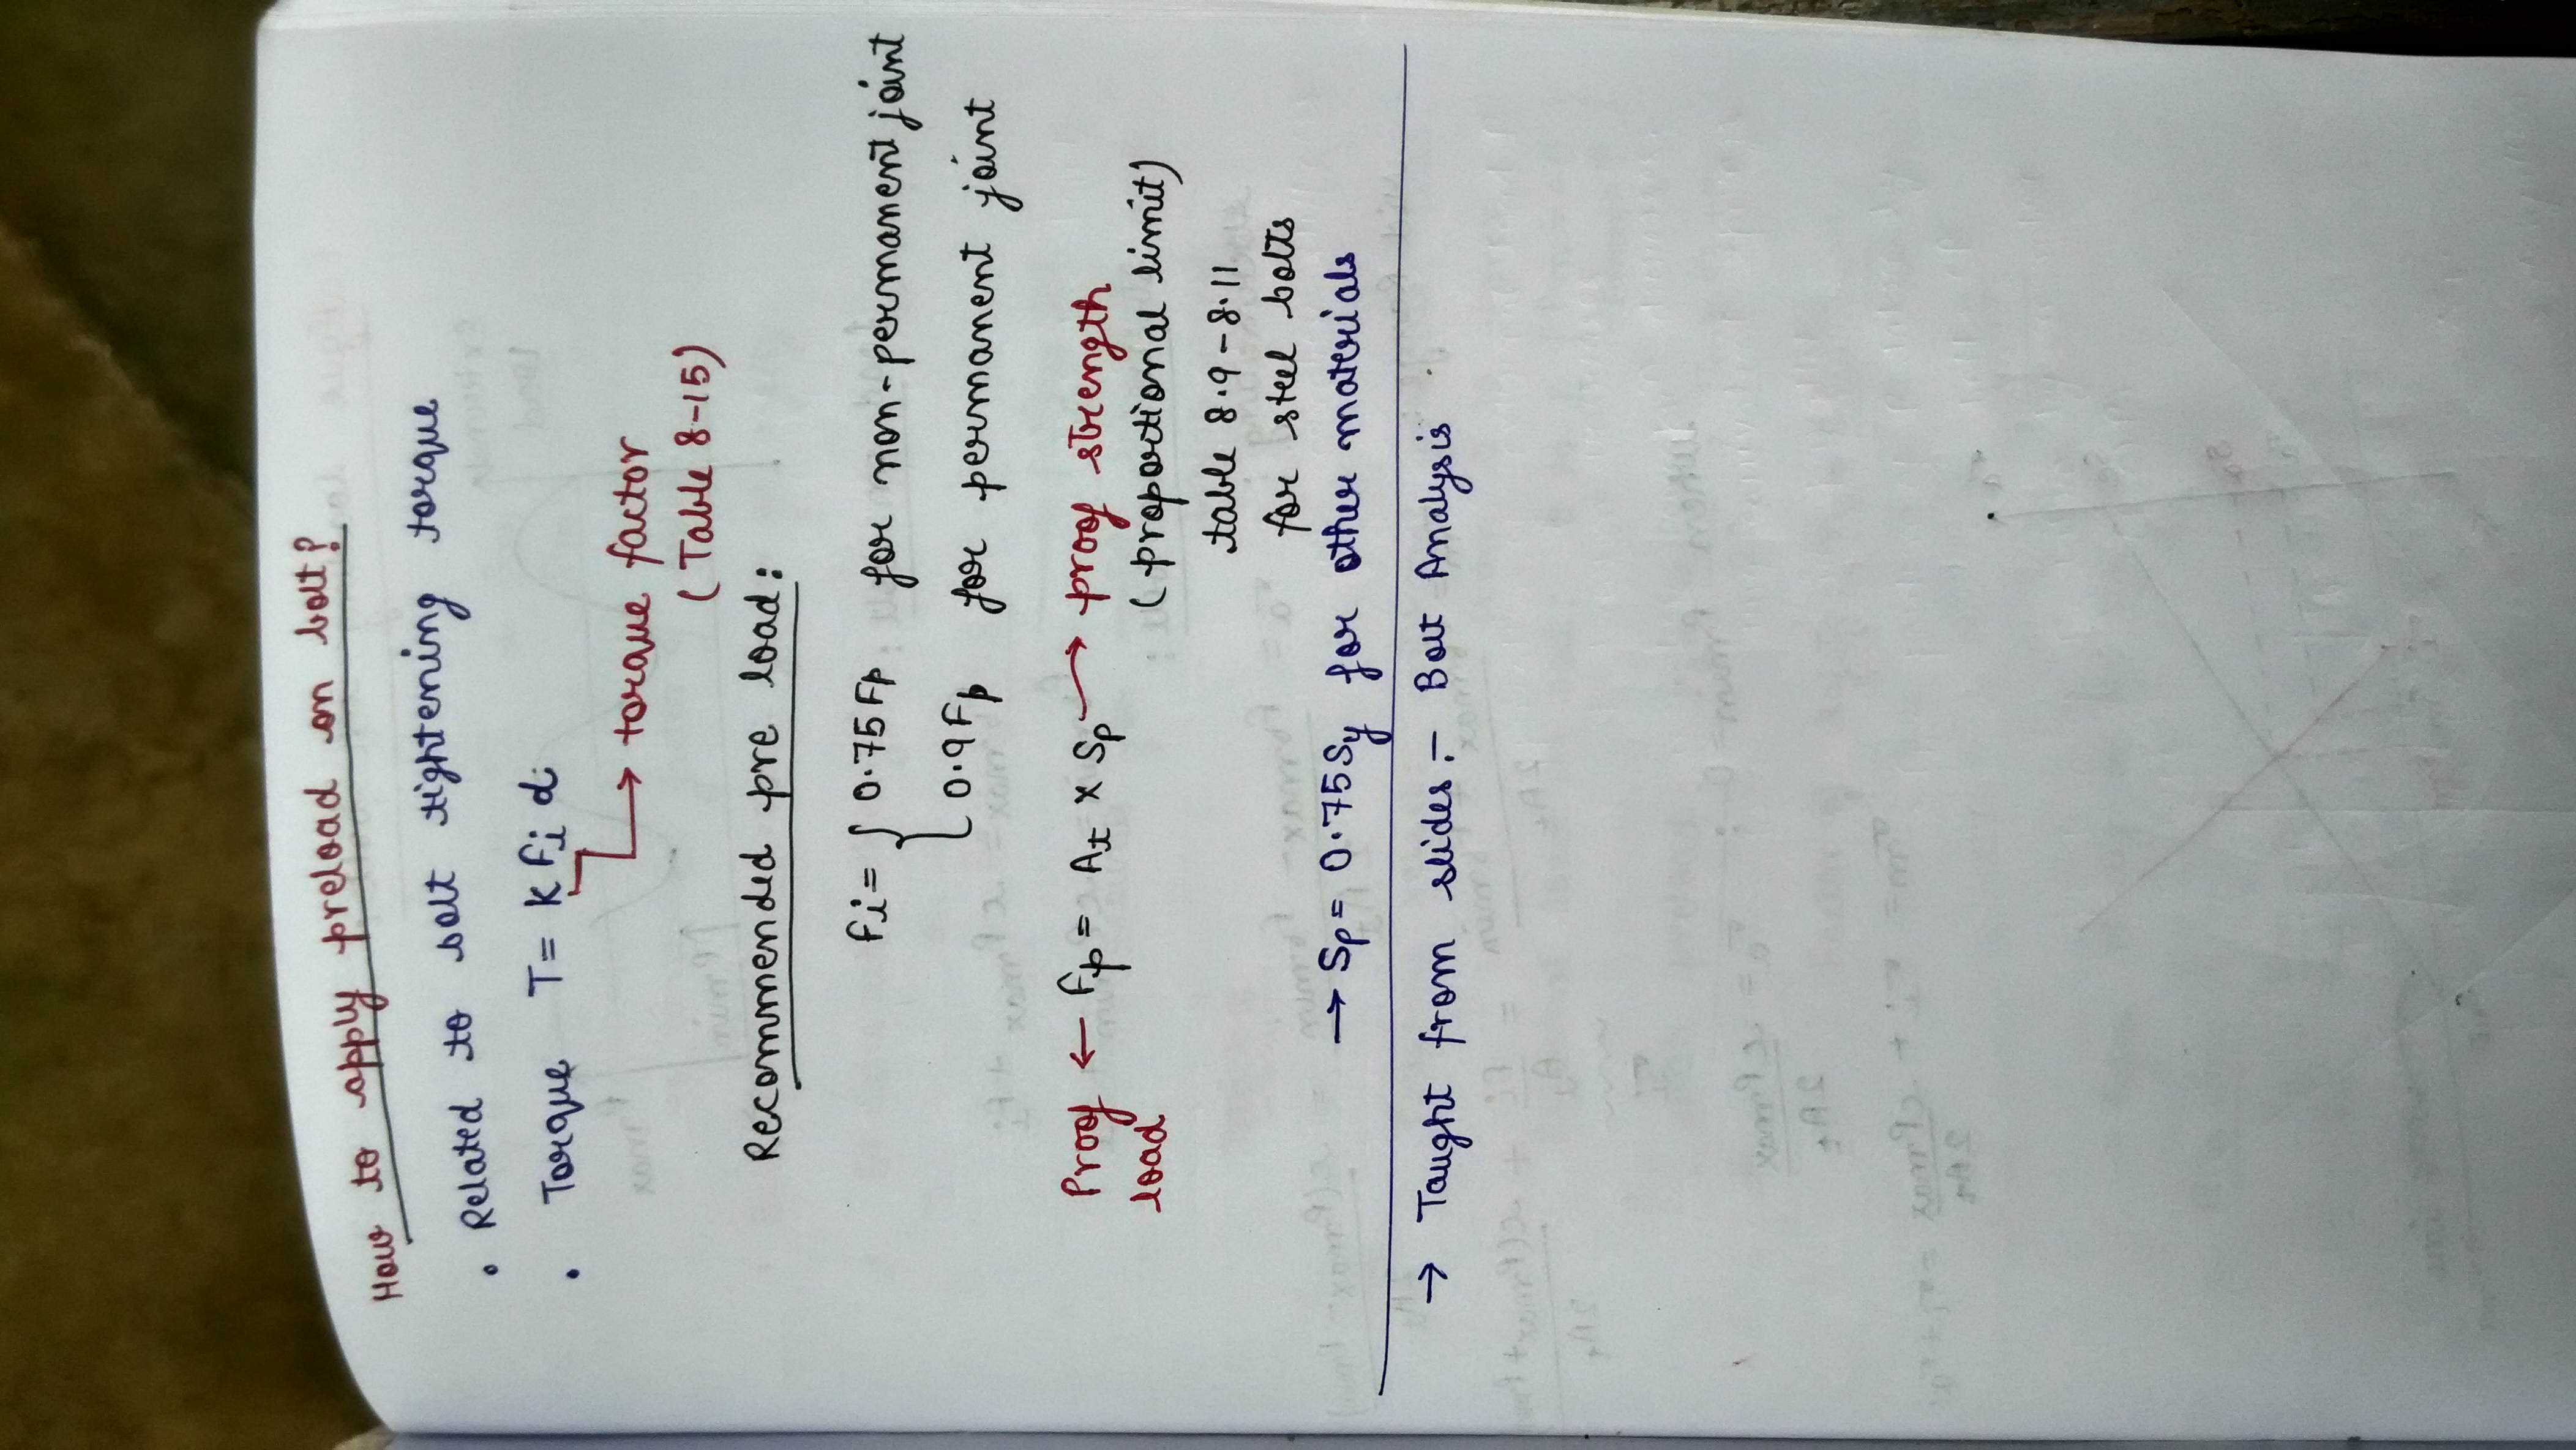 How to apply preload on bolt?
• Related to bolt tightening torque
• Torque T = K Fi d
→ torque factor
(Table 8-15)
Recommended pre load:
Fi = { 0.75 Fp for non-permanent joint
0.9 Fp for permanent joint
Proof load ← Fp = At × Sp → proof strength
(proportional limit)
table 8.9 - 8.11
for steel bolts
→ Sp = 0.75 Sy for other materials
→ Taught from slides :- Bolt Analysis